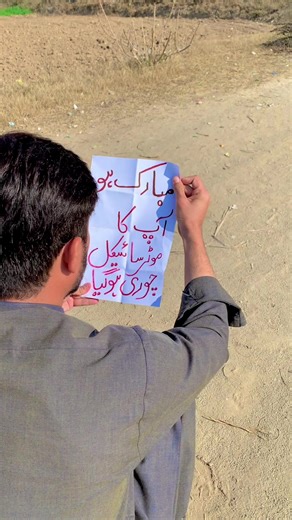 مبارک ہو
آپ کا
موٹرسائیکل
چوری ہوگیا